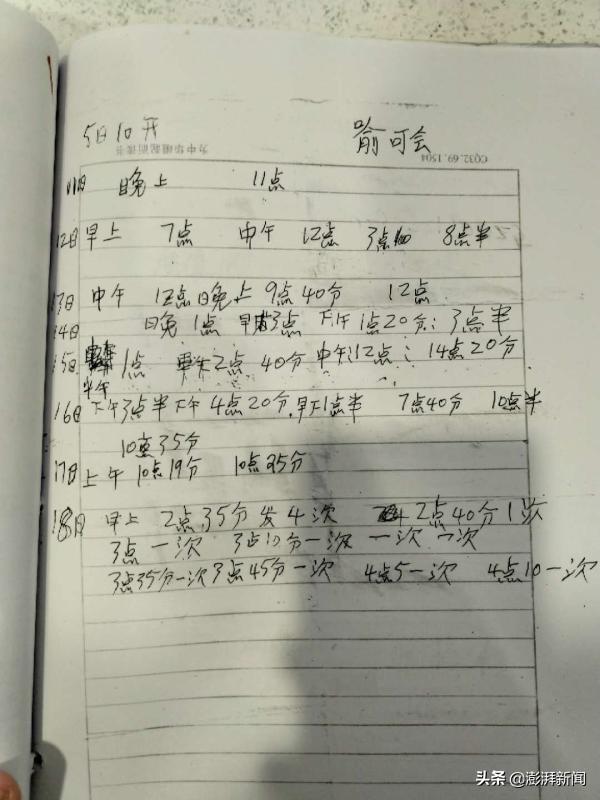 5日10开 喻可会
为中华崛起而读书 CQ32.69.1504
11日 晚上 11点
12日 早上 7点 中午 12点 3点 8点半
13日 中午 12点 晚上 9点40分 12点
14日 晚 1点 早 3点 下午 1点20分: 3点半
15日 1点 2点 40分 中午:12点: 14点20分
半午
16日 下午3点半 下午 4点20分. 早下1点半 7点40分 10点半
10点35分
17日 上午 10点19分 10点25分
18日 早上 2点35分 发4次 2点40分1次
3点 一次 3点10分一次 一次 一次
3点35分一次 3点45分一次 4点5一次 4点10一次
头条@澎湃新闻